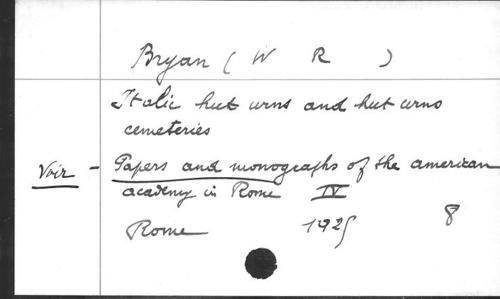 Bryan (W R )
Italic hut urns and hut urns
cemeteries
Voir - Papers and monographs of the american
academy in Rome IV
Rome 1925 8